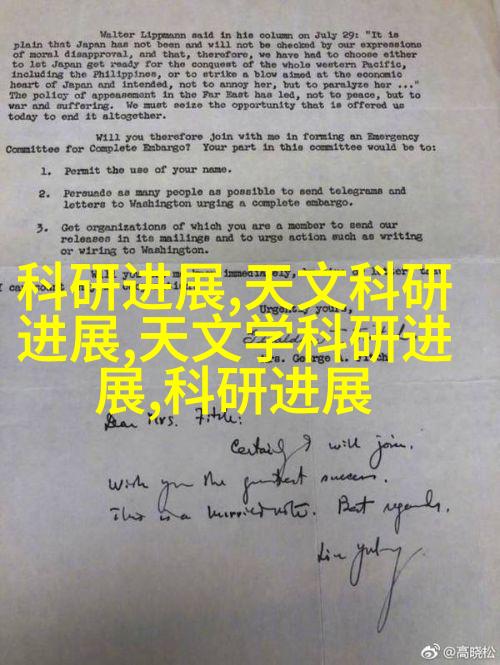 Walter Lippmann said in his column on July 29: "It is
plain that Japan has not been and will not be checked by our expressions
of moral disapproval, and that, therefore, we have had to choose either
to let Japan get ready for the conquest of the whole western Pacific,
including the Philippines, or to strike a blow aimed at the economic
heart of Japan and intended, not to annoy her, but to paralyze her ..."
The policy of appeasement in the Far East has led, not to peace, but to
war and suffering. We must seize the opportunity that is offered us
today to end it altogether.
Will you therefore join with me in forming an Emergency
Committee for Complete Embargo? Your part in this committee would be to:
1. Permit the use of your name.
2. Persuade as many people as possible to send telegrams and
letters to Washington urging a complete embargo.
3. Get organizations of which you are a member to send our
releases in its mailings and to urge action such as writing
or wiring to Washington.
Will you immediately,
科研进展,天文科研
进展,天文学科研进
展,科研进展
Urgently yours,
Mrs. George A. Fitch
Dear Mrs. Fitch:
Certainly I will join.
Wish you the greatest success.
This is a hurried note. Best regards.
Lin Yutang
@高晓松